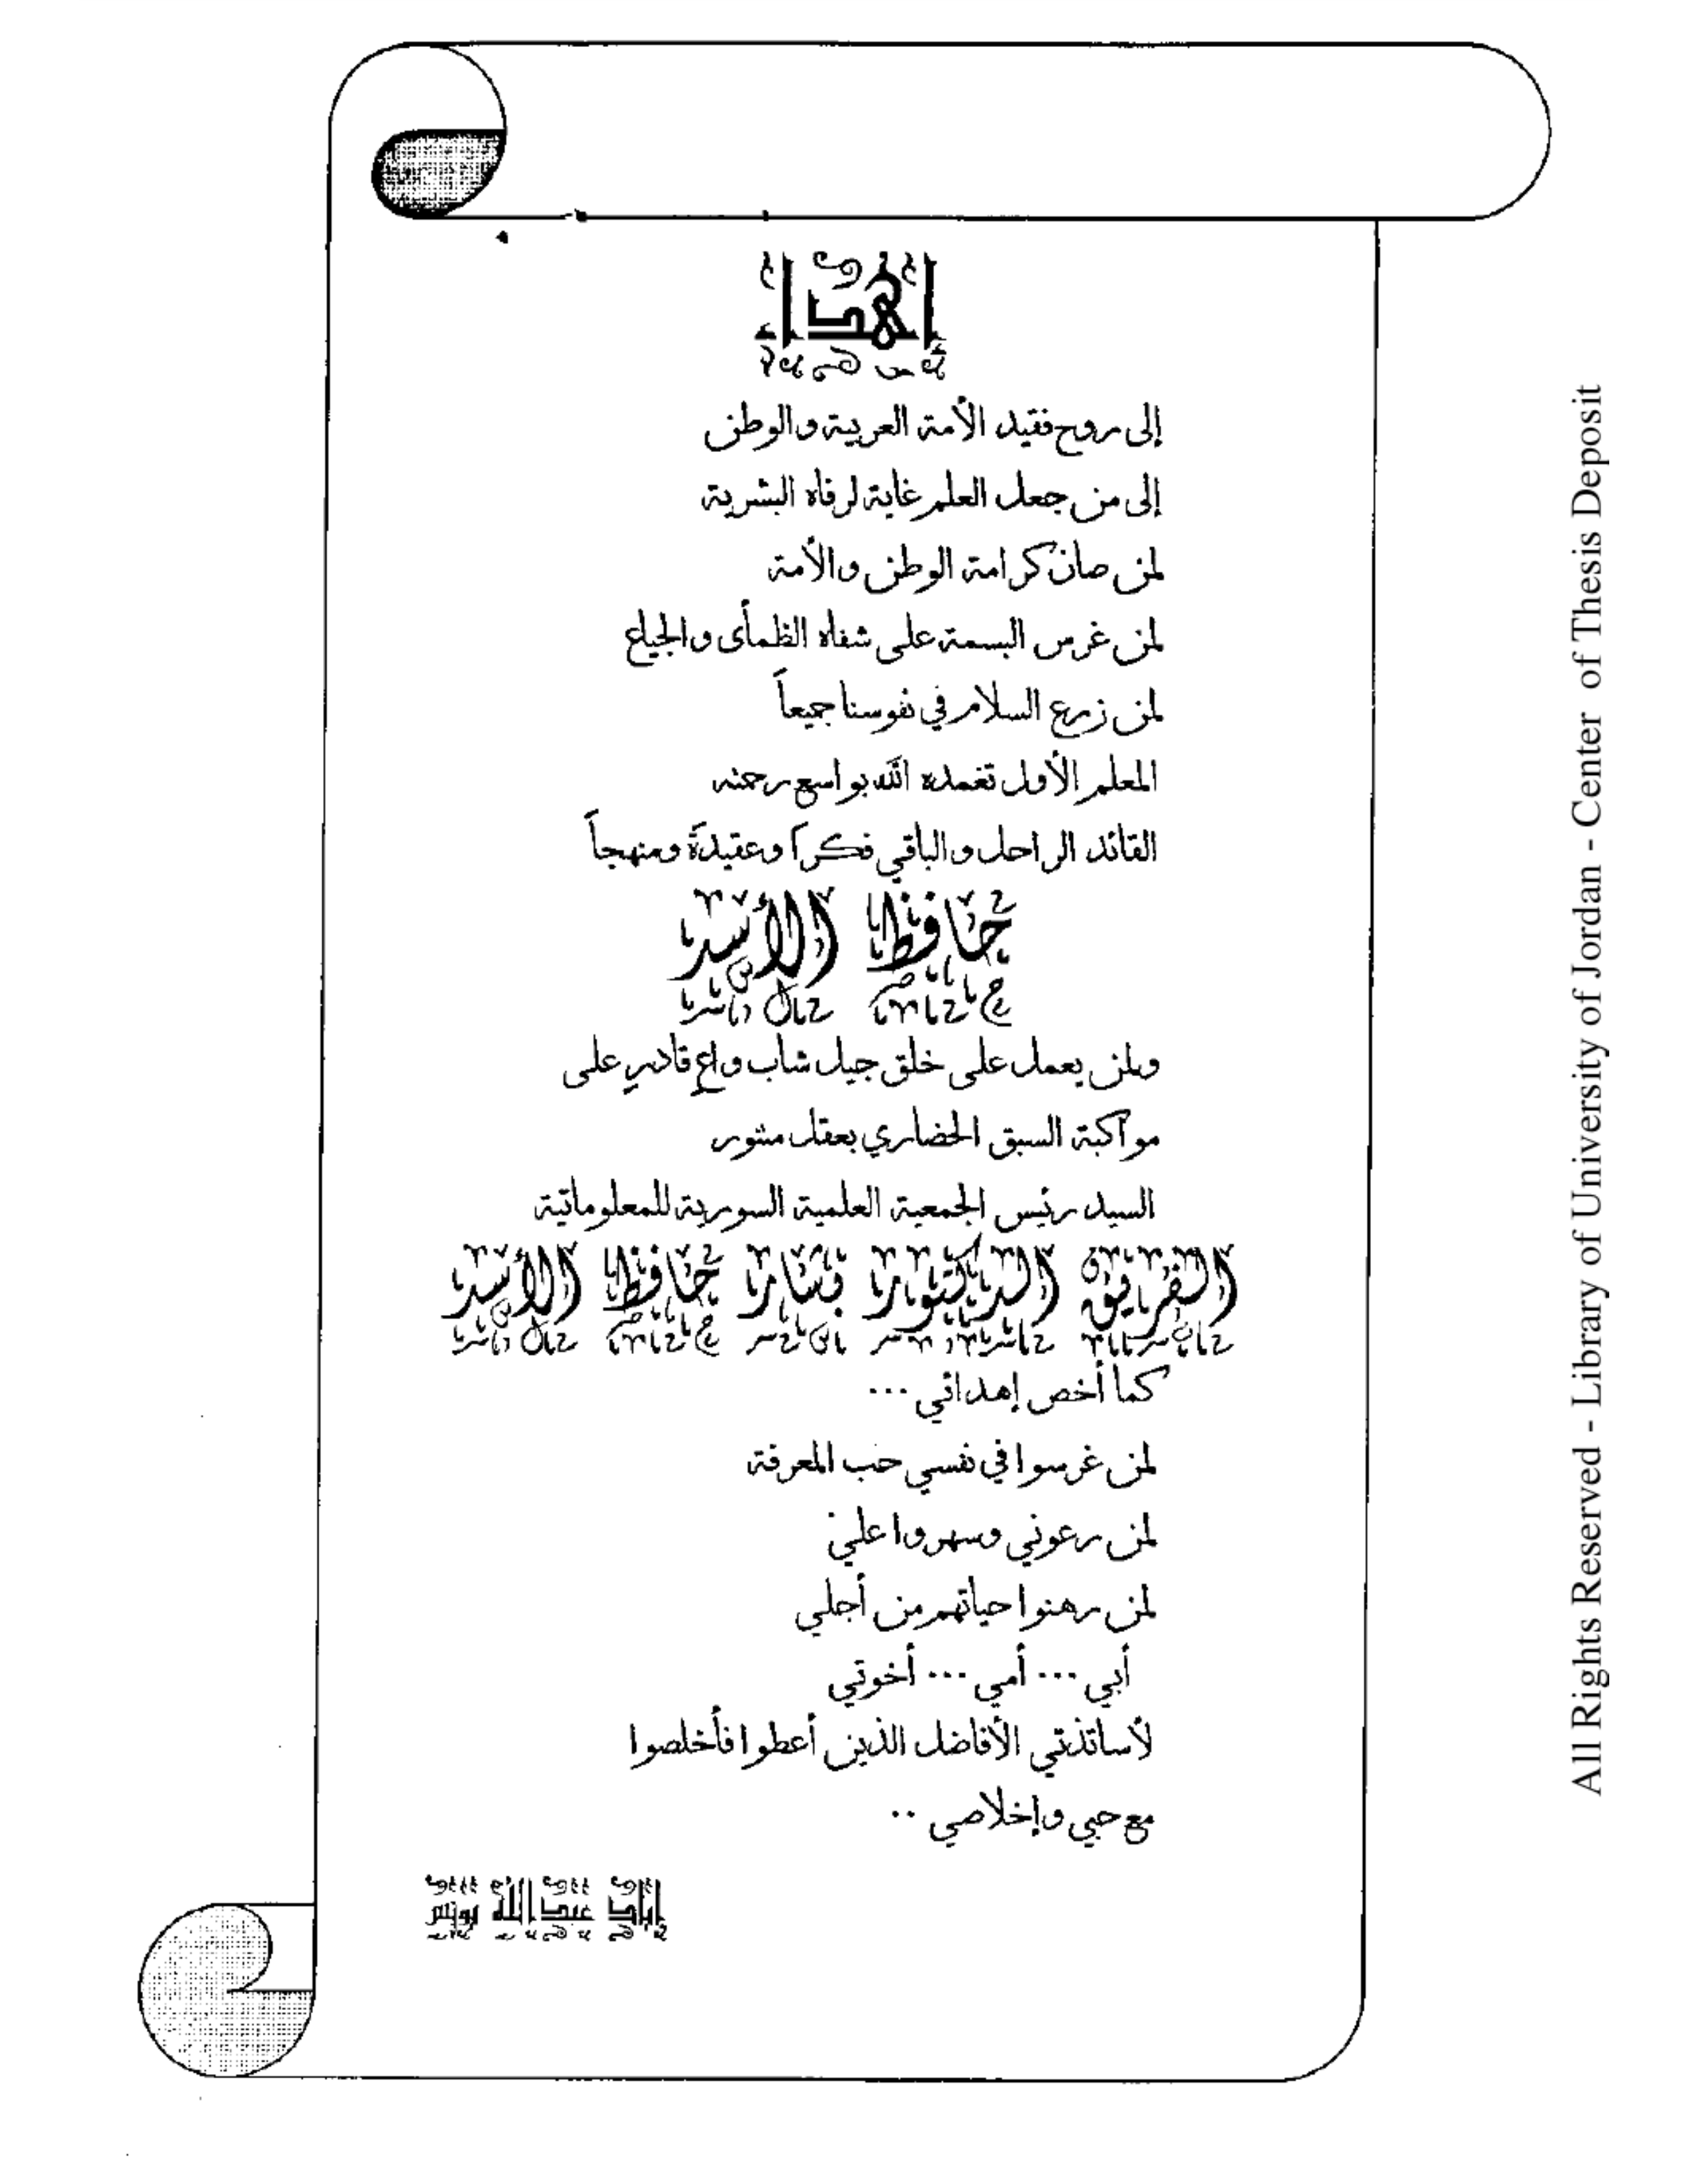 إهداء
إلى روح فقيد الأمة العربية والوطن
إلى من جعل العلم غاية لرفاه البشرية
لمن صان كرامة الوطن والأمة
لمن غرس البسمة على شفاه الظمأى والجياع
لمن زرع السلام في نفوسنا جميعاً
المعلم الأول تغمده الله بواسع رحمته
القائد الراحل والباقي فكراً وعقيدةً ومنهجاً
حافظ الأسد
ولمن يعمل على خلق جيل شاب واعٍ قادرٍ على
مواكبة السبق الحضاري بعقل متنور
السيد رئيس الجمعية العلمية السورية للمعلوماتية
الفريق الدكتور بشار حافظ الأسد
كما أخص إهدائي ...
لمن غرسوا في نفسي حب المعرفة
لمن رعوني وسهروا علي
لمن رهنوا حياتهم من أجلي
أبي ... أمي ... أخوتي
لأساتذتي الأفاضل الذين أعطوا فأخلصوا
مع حبي وإخلاصي ..
إياد عبد الله يونس
All Rights Reserved - Library of University of Jordan - Center of Thesis Deposit